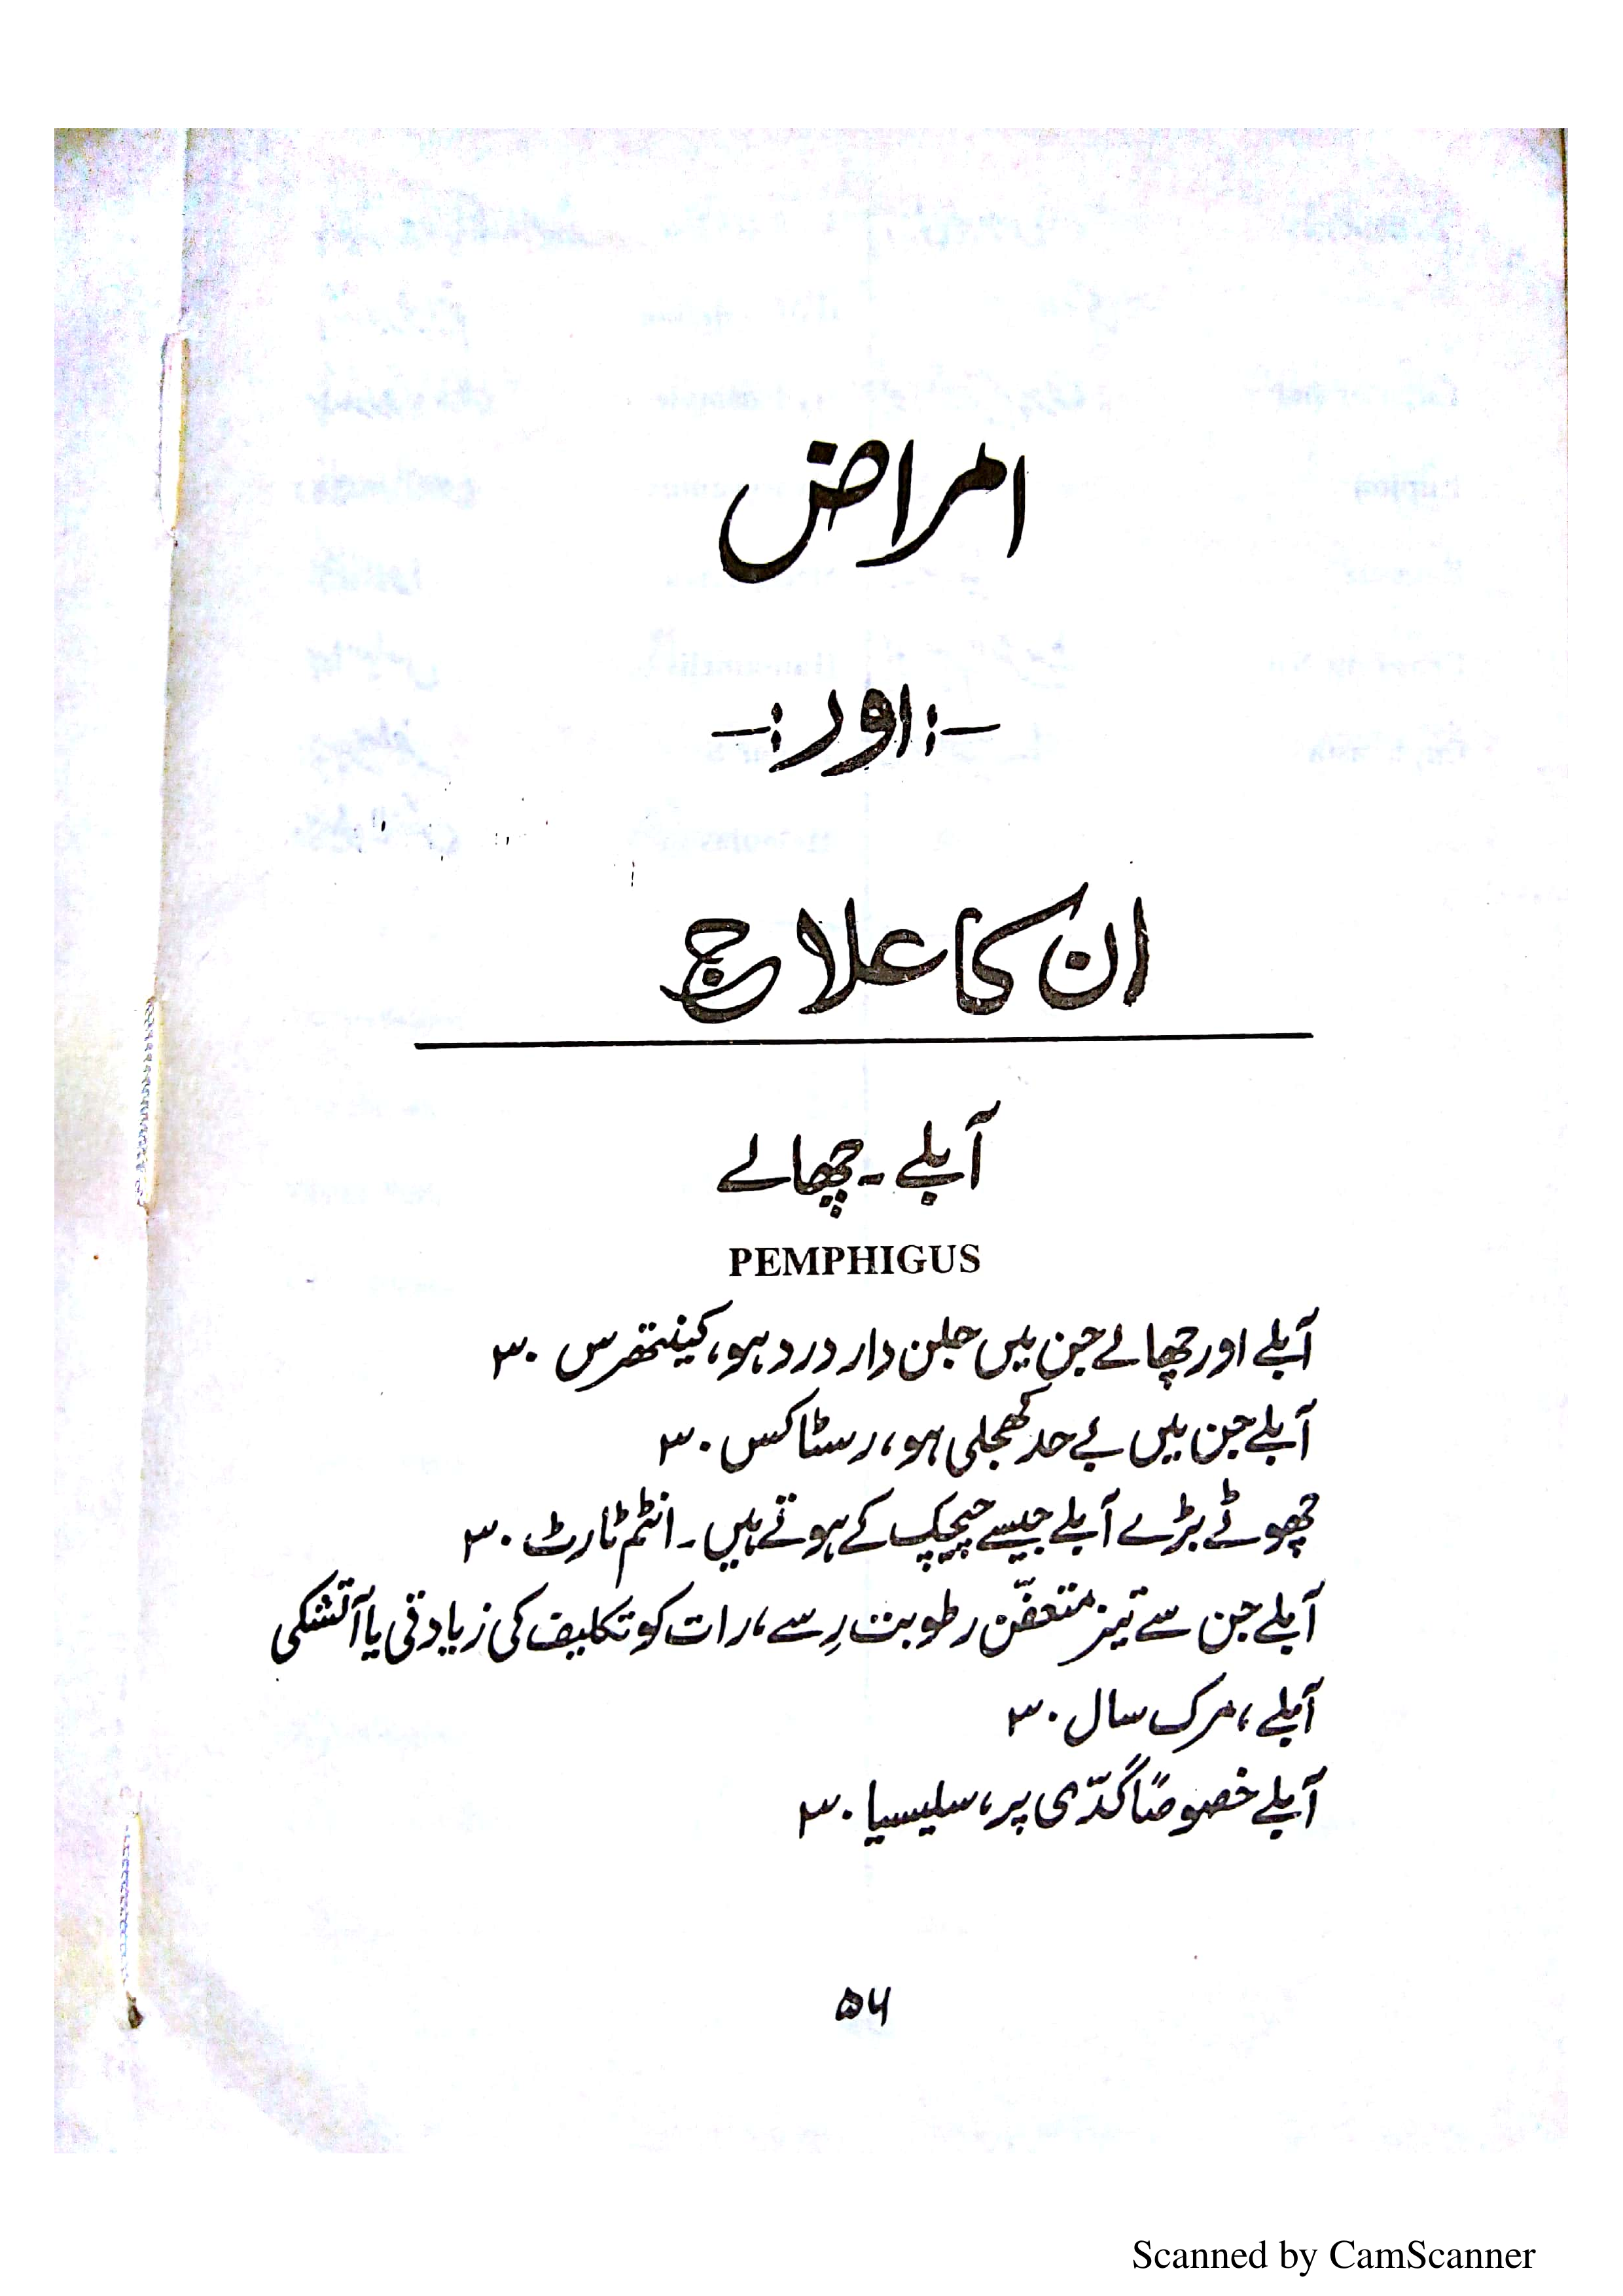 امراض
–: اور :–
ان کا علاج
آبلے ۔ چھالے
PEMPHIGUS
آبلے اور چھالے جن میں جلن دار درد ہو، کینتھرس ۳۰
آبلے جن میں بے حد کھجلی ہو، رسٹاکس ۳۰
چھوٹے بڑے آبلے جیسے چیچک کے ہوتے ہیں ۔ انٹم ٹارٹ ۳۰
آبلے جن سے تیز متعفّن رطوبت رِسے، رات کو تکلیف کی زیادتی یا آتشکی
آبلے، مرک سال ۳۰
آبلے خصوصاً گدّی پر، سلیسیا ۳۰
۵۶
Scanned by CamScanner